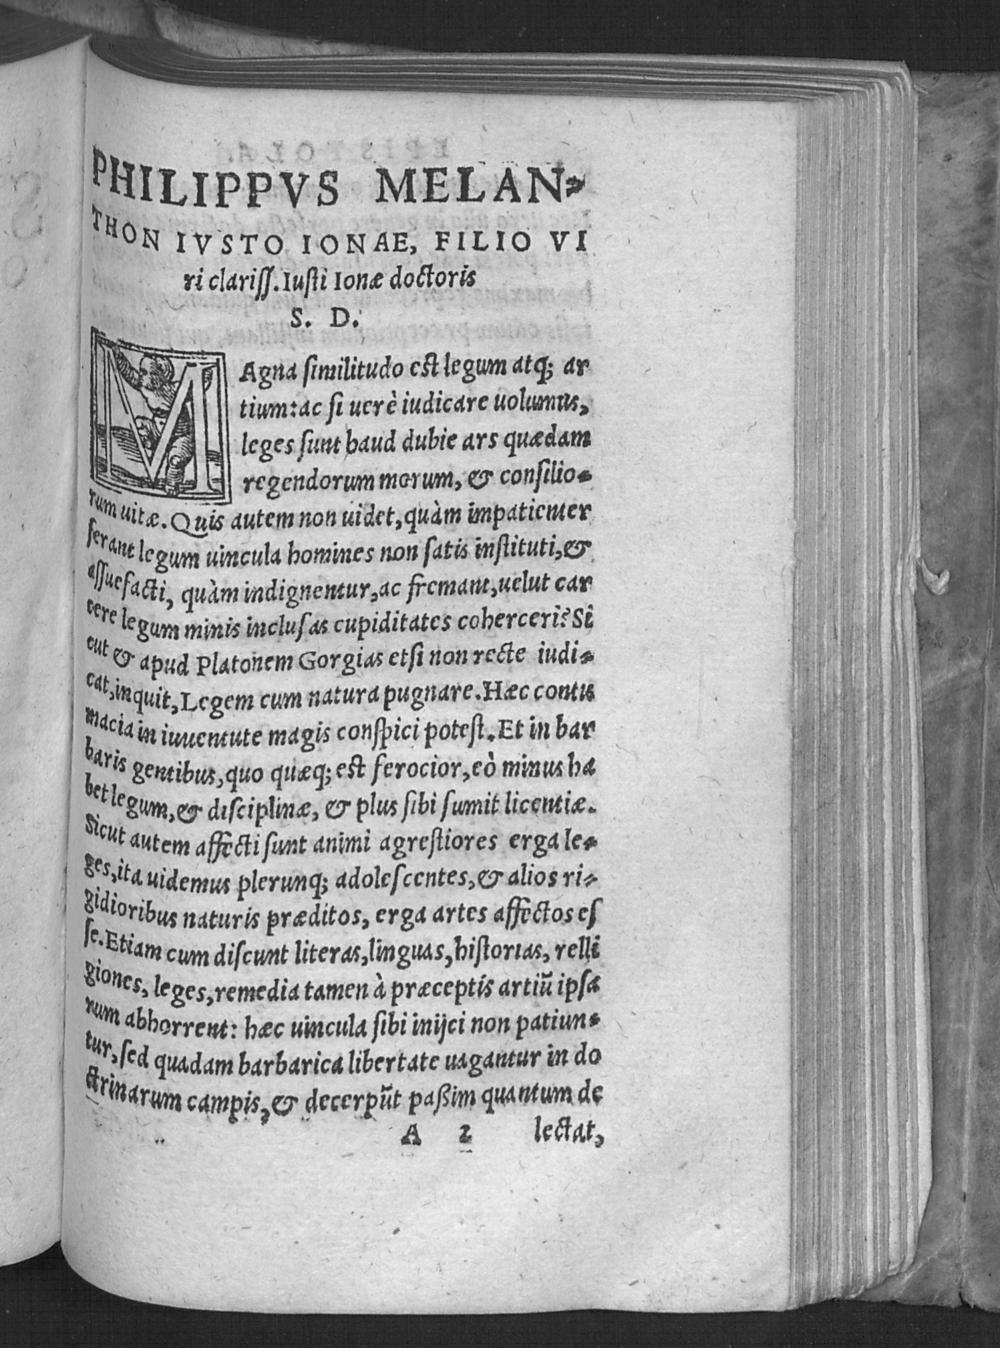 PHILIPPVS MELAN-
THON IVSTO IONAE, FILIO VI
ri clariss. Iusti Ionæ doctoris
S. D.
MAgna similitudo est legum atq; ar
tium: ac si uerè iudicare uolumus,
leges sunt haud dubie ars quædam
regendorum morum, & consilio-
rum uitæ. Quis autem non uidet, quàm impatienter
ferant legum uincula homines non satis instituti, &
assuefacti, quàm indignentur, ac fremant, uelut car
cere legum minis inclusas cupiditates coherceri? Si
cut & apud Platonem Gorgias etsi non recte iudi-
cat, inquit, Legem cum natura pugnare. Hæc contu
macia in iuuentute magis conspici potest. Et in bar
baris gentibus, quo quæq; est ferocior, eò minus ha
bet legum, & disciplinæ, & plus sibi sumit licentiæ.
Sicut autem affecti sunt animi agrestiores erga le-
ges, ita uidemus plerunq; adolescentes, & alios ri-
gidioribus naturis præditos, erga artes affectos es
se. Etiam cum discunt literas, linguas, historias, reli
giones, leges, remedia tamen à præceptis artiũ ipsa
rum abhorrent: hæc uincula sibi inijci non patiun-
tur, sed quadam barbarica libertate uagantur in do
ctrinarum campis, & decerpũt paßim quantum de
A 2 lectat,